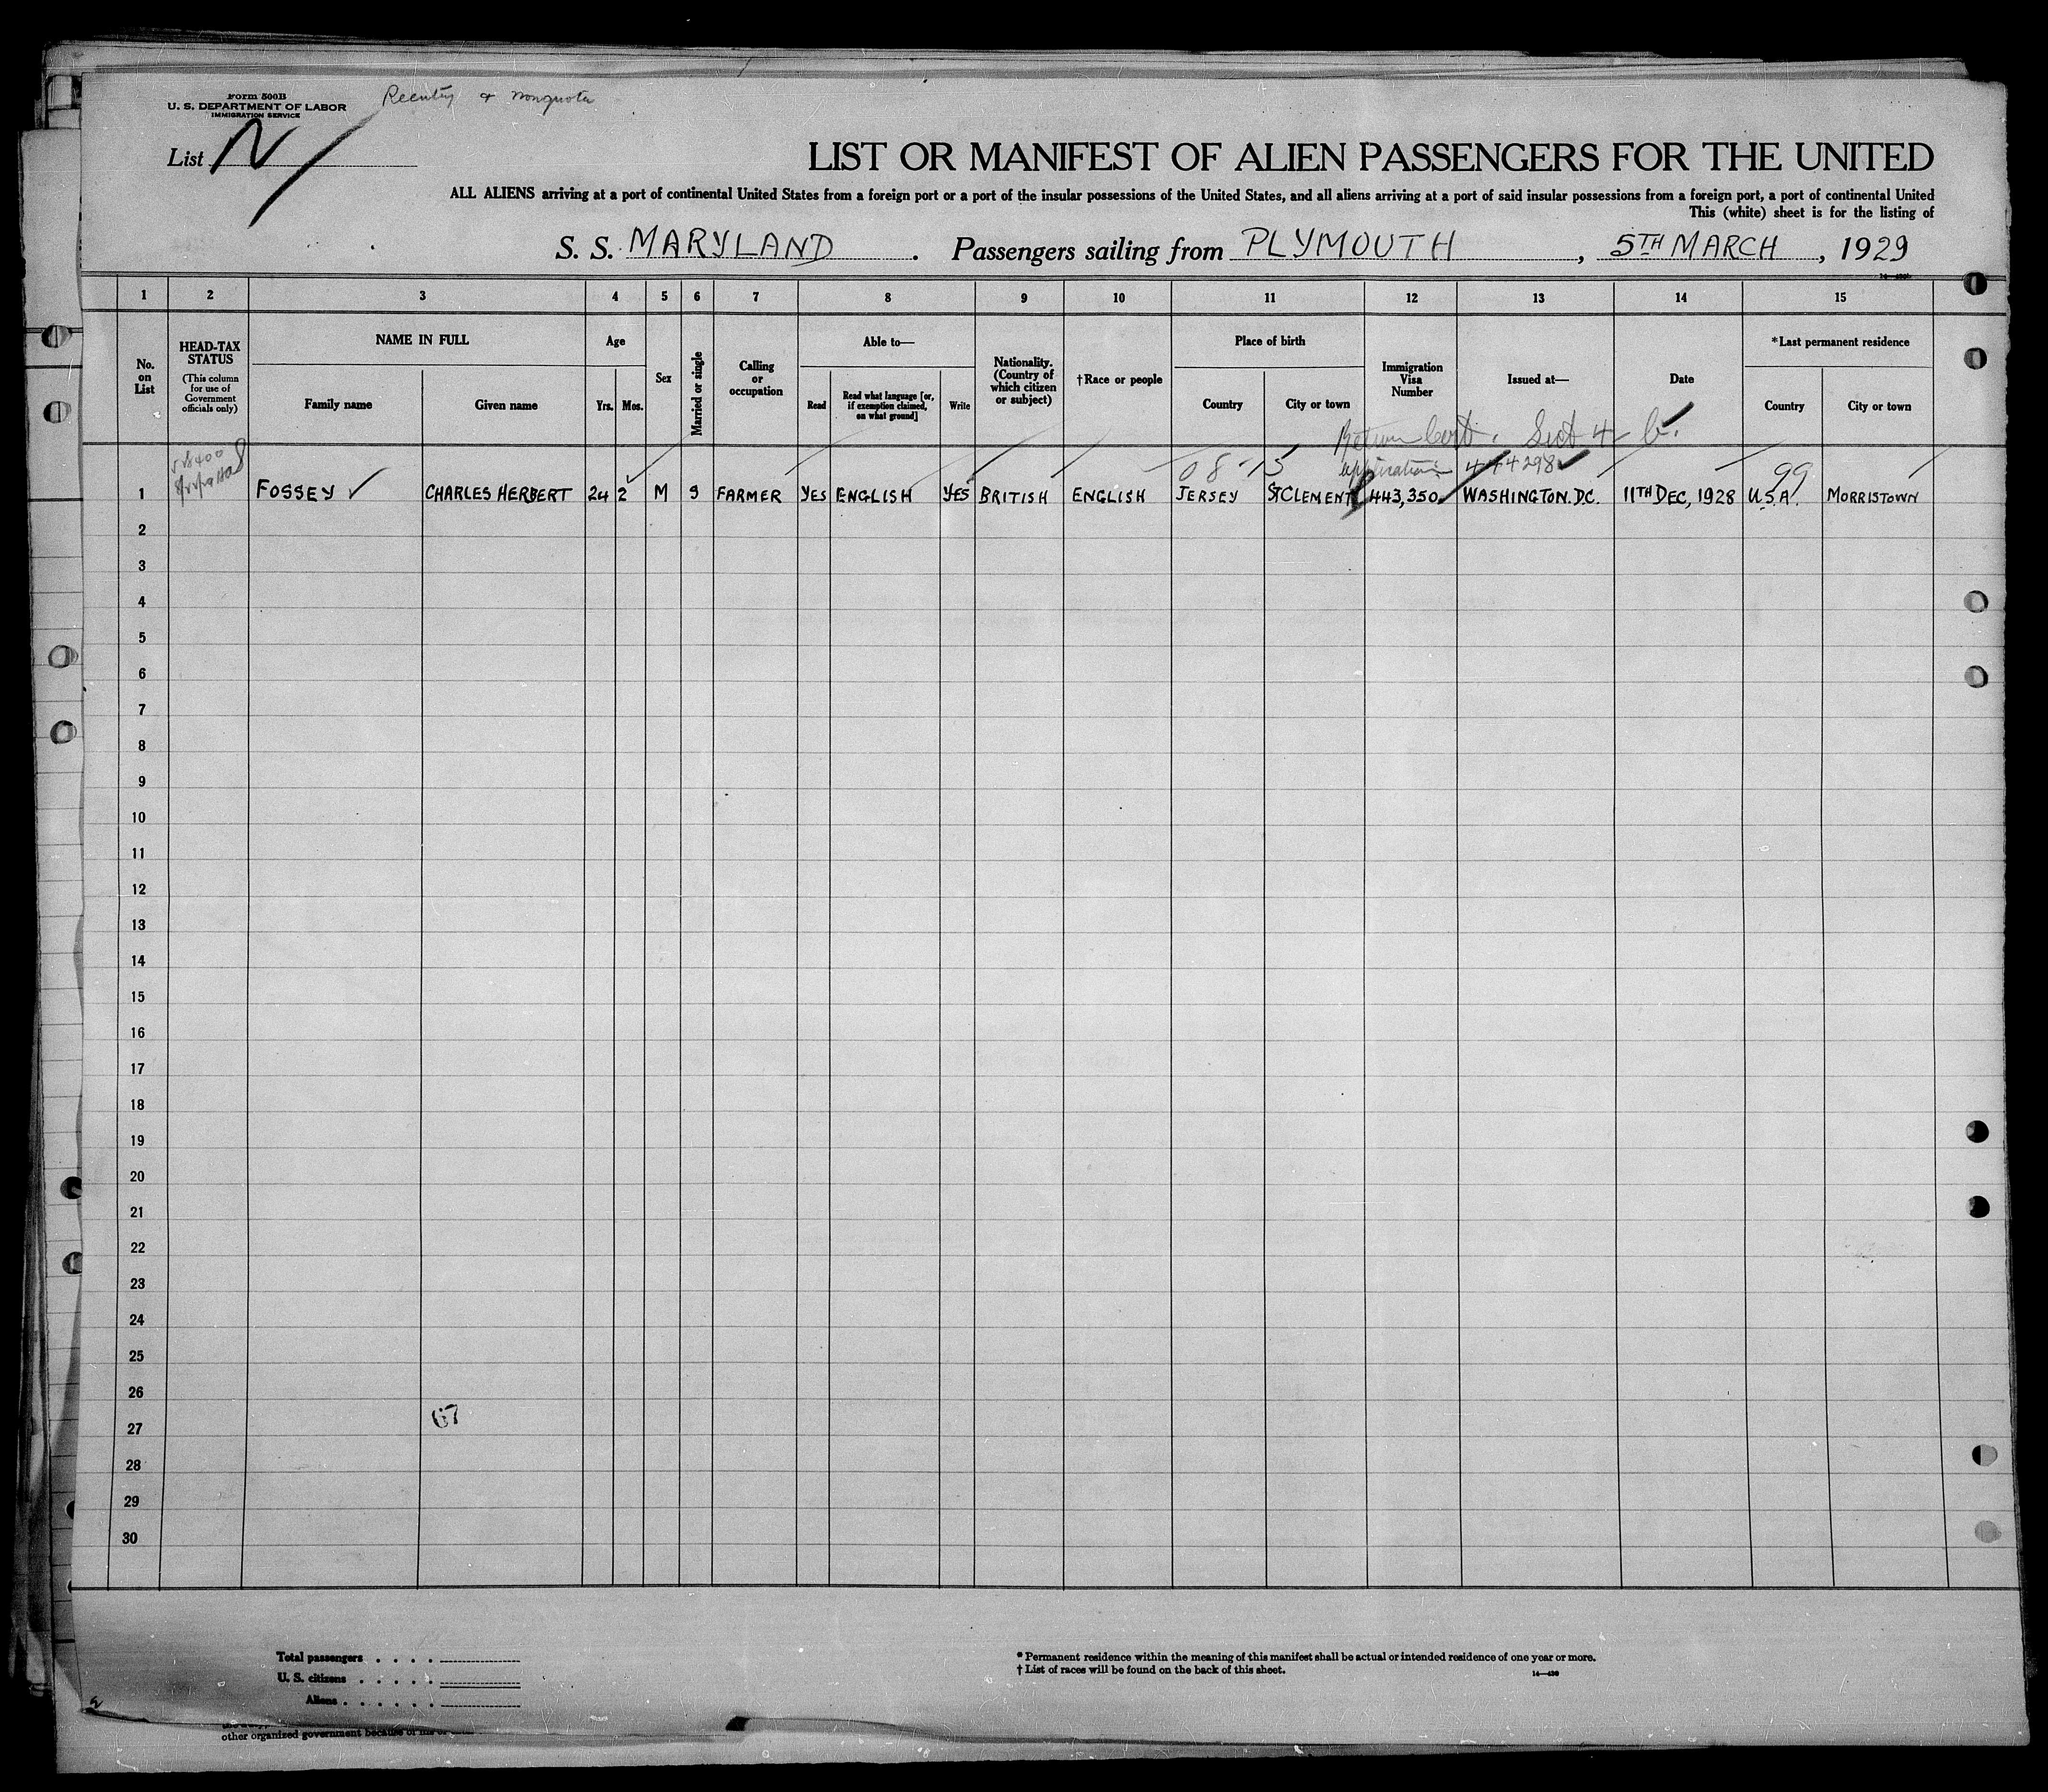 Form 500B
U. S. DEPARTMENT OF LABOR
IMMIGRATION SERVICE
Reentry & nonquota
List N
LIST OR MANIFEST OF ALIEN PASSENGERS FOR THE UNITED
ALL ALIENS arriving at a port of continental United States from a foreign port or a port of the insular possessions of the United States, and all aliens arriving at a port of said insular possessions from a foreign port, a port of continental United
This (white) sheet is for the listing of
S. S. MARYLAND . Passengers sailing from PLYMOUTH , 5TH MARCH , 1929
1 2 3 4 5 6 7 8 9 10 11 12 13 14 15
No. on List
HEAD-TAX STATUS
(This column for use of Government officials only)
NAME IN FULL
Family name
Given name
Age
Yrs.
Mos.
Sex
Married or single
Calling or occupation
Able to—
Read
Read what language [or, if exemption claimed, on what ground]
Write
Nationality. (Country of which citizen or subject)
†Race or people
Place of birth
Country
City or town
Immigration Visa Number
Issued at—
Date
*Last permanent residence
Country
City or town
Return Cert. Sect 4- b.
08-15 application 444298 99
1 FOSSEY CHARLES HERBERT 24 2 M S FARMER YES ENGLISH YES BRITISH ENGLISH JERSEY ST CLEMENT 443,350 WASHINGTON. D.C. 11TH DEC, 1928 U.S.A. MORRISTOWN
2
3
4
5
6
7
8
9
10
11
12
13
14
15
16
17
18
19
20
21
22
23
24
25
26
67
27
28
29
30
Total passengers . . . .
U. S. citizens . . . . .
Aliens . . . . . .
* Permanent residence within the meaning of this manifest shall be actual or intended residence of one year or more.
† List of races will be found on the back of this sheet.
14—430
other organized government because of his or